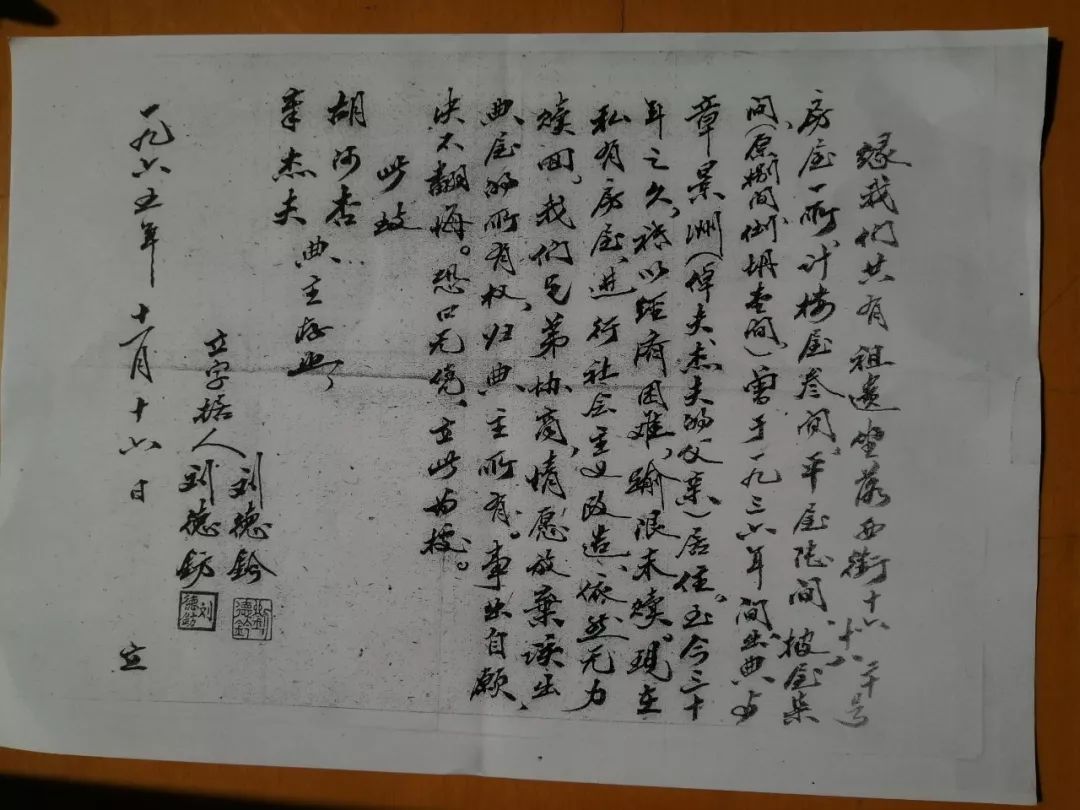 缘我们共有祖遗坐落西街十六十八二十号
房屋一所计楼屋叁间、平屋陆间、披屋柒
间（原捌间倒坍壹间）曾于一九三六年间出典与
章景洲（倬夫、杰夫的父亲）居住。至今三十
年之久，祗以经济困难，踰限未赎。现在
私有房屋、进行社会主义改造、依然无力
赎回。我们兄弟协商，情愿放弃该出
典屋的所有权，归典主所有。事出自愿，
决不翻悔。恐口无凭、立此为据。
此致
胡河杏
章杰夫 典主存照
立字据人 刘德铃
刘德钫
刘德钫
刘德铃
一九六五年十一月十六日 立